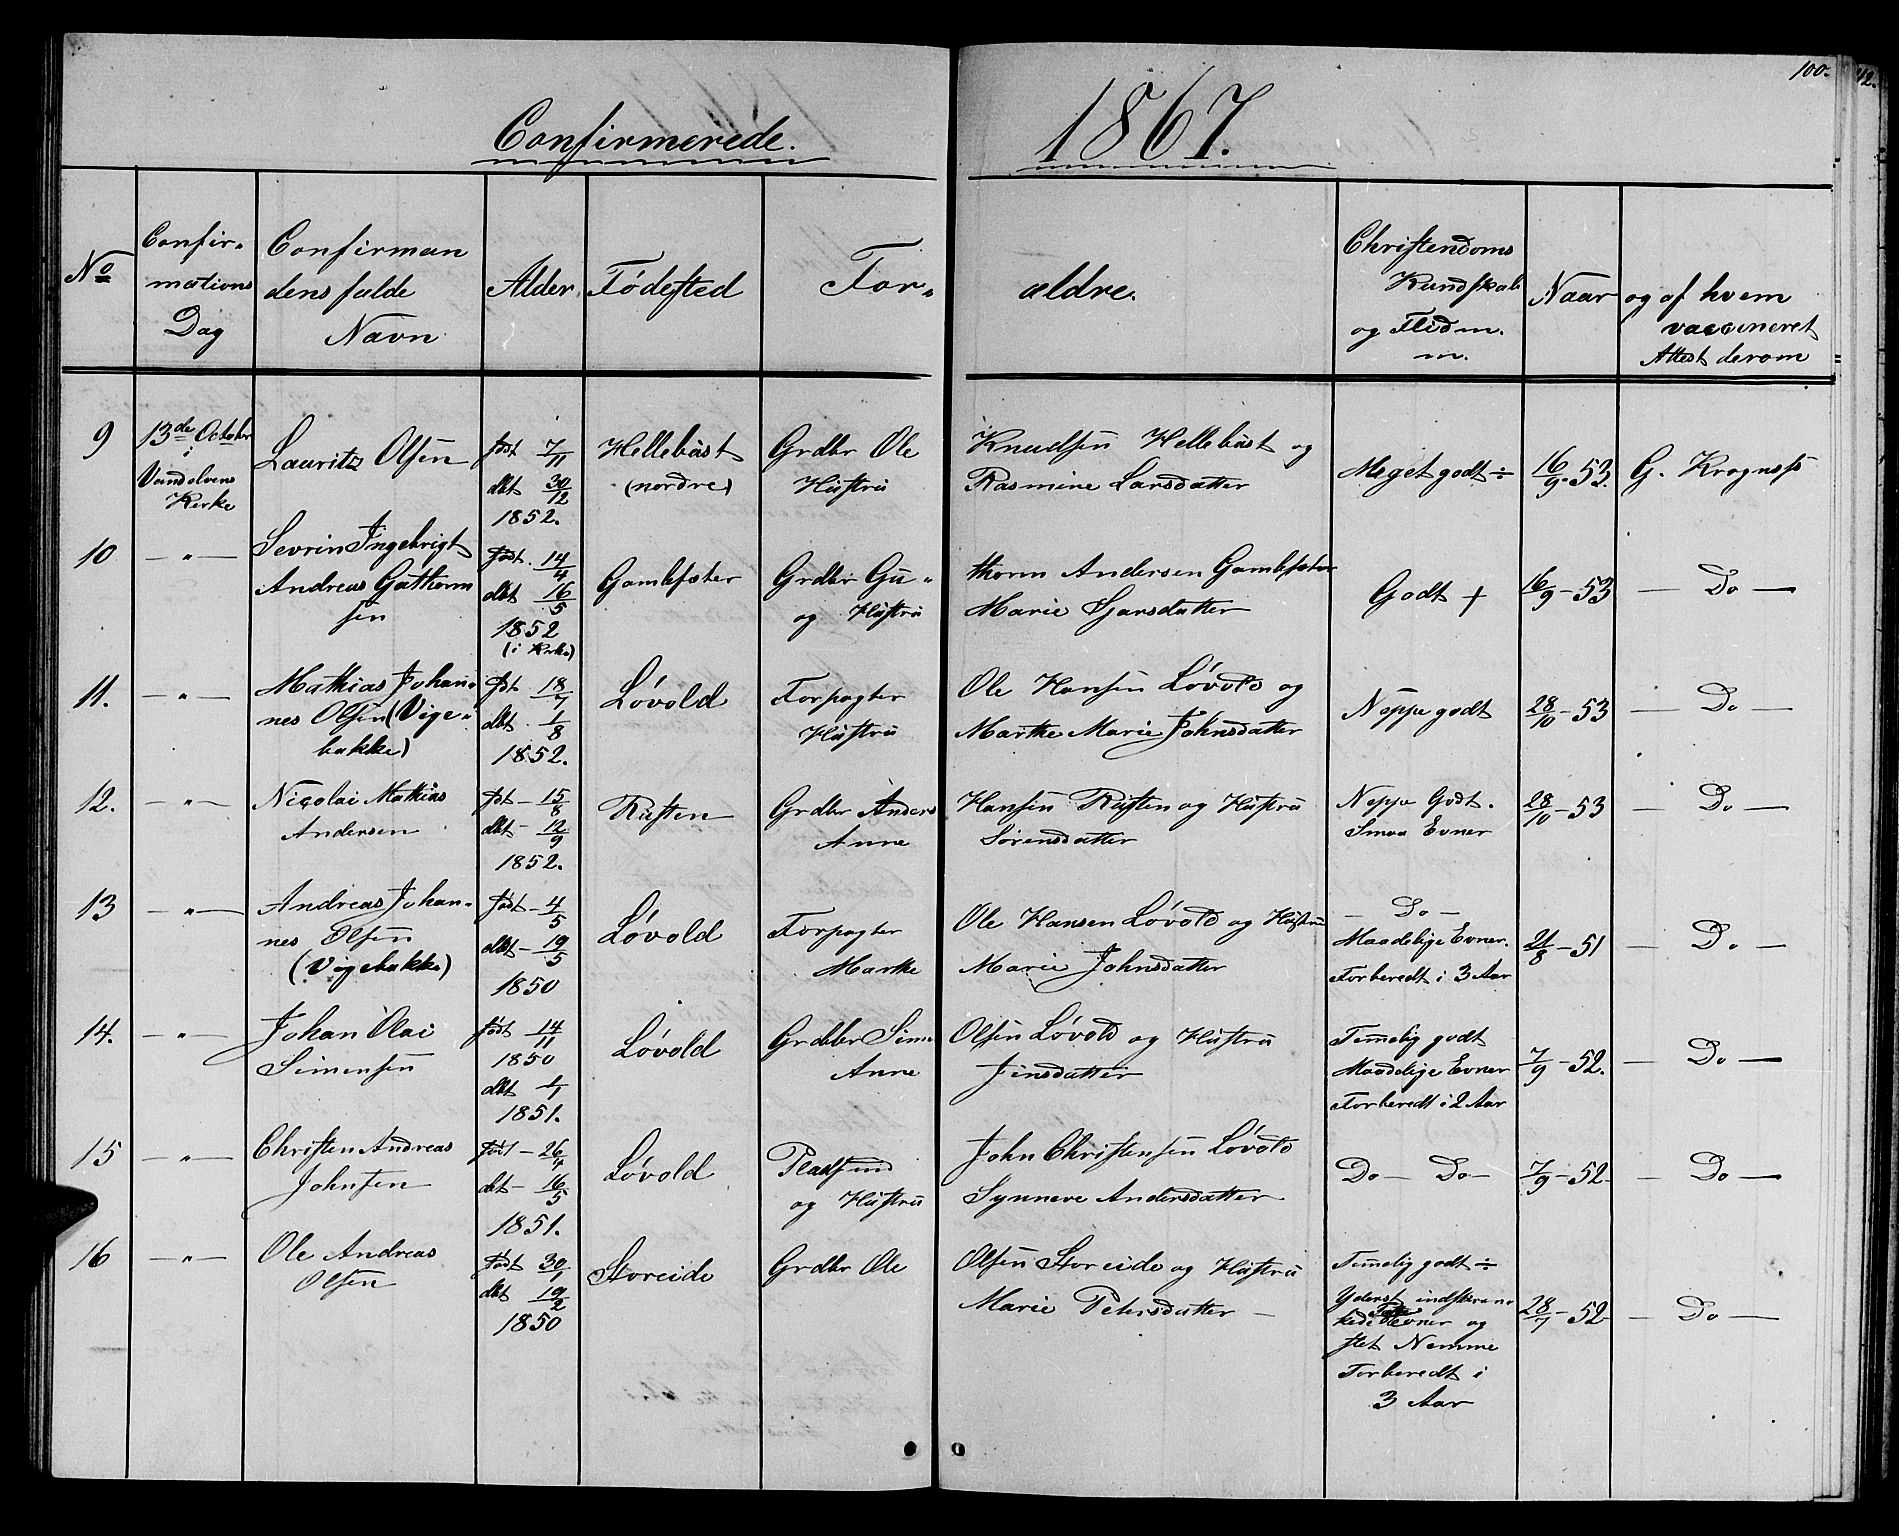 100.
42.
Confirmerede.
1867.
No
Confir-
mations
Dag
Confirman
dens fulde
Navn
Alder
Fødested
For-
ældre.
Christendoms
Kundskab
og Flid m.
m.
Naar
og af hvem
vaccineret
Attest derom
9
13de October
i
Vandelvens
Kirke
Lauritz Olsen
født 7/11
dbt 30/12
1852.
Hellebust
(nordre)
Grdbr Ole
Hustru
Knudsen Hellebust og
Rasmine Larsdatter
Meget godt ÷
16/9-53.
G. Krognæss
10
— " —
Sevrin Ingebrigt
Andreas Guthorm
sen
født. 14/4
dbt 16/5
1852
(i Kirke)
Gamlesæter
Grdbr Gu-
og Hustru
thorm Andersen Gamlesæter
Marie Sjursdatter
Godt +
16/9-53
— Do —
11.
— " —
Mathias Johan-
nes Olsen (Vige-
bakke)
fdt - 18/7
dbt. 1/8
1852.
Løvold
Forpagter
Hustru
Ole Hansen Løvold og
Marthe Marie Johnsdatter
Neppe godt
28/10-53
— Do —
12.
— " —
Nicolai Mathias
Andersen
fdt - 15/8
dbt - 12/9
1852.
Rusten
Grdbr Anders
Anne
Hansen Rusten og Hustru
Sørensdatter
Neppe Godt.
Smaa Evner
28/10-53
— Do —
13
— " —
Andreas Johan-
nes Olsen
(Vigebakke)
født - 4/5
dbt - 19/5
1850
Løvold
Forpagter
Marthe
Ole Hansen Løvold og Hustru
Marie Johnsdatter
— Do —
Maadelige Evner.
Forberedt i 3 Aar
21/8-51
— Do —
14.
— " —
Johan Olai
Simensen
født 14/11
1850
dbt 1/1
1851.
Løvold
Grdbr Sim-
Anne
Olsen Løvold og Hustru
Jensdatter
Temmelig godt
Maadelige Evner
Forberedt i 2 Aar
7/9-52.
— Do —
15
— " —
Christen Andreas
Johnsen
født - 26/4
dbt - 16/5
1851.
Løvold
Pladsmd
og Hustru
John Christensen Løvold
Synneve Andersdatter
Do — Do —
7/9-52.
— Do —
16
— " —
Ole Andreas
Olsen
født 30/1
dbt 19/2
1850
Storeide
Grdbr Ole
Olsen Storeide og Hustru
Marie Petersdatter —
Temmelig godt ÷
Yderst indskræn-
kede Evner og
slet Nemme
Forberedt i
3 Aar
28/7-52
— Do —